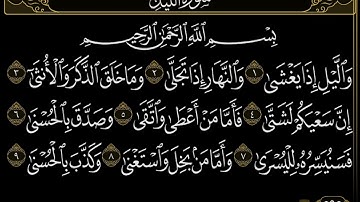 سورة الليل
بِسْمِ اللَّهِ الرَّحْمَٰنِ الرَّحِيمِ
وَالَّيْلِ إِذَا يَغْشَىٰ ١ وَالنَّهَارِ إِذَا تَجَلَّىٰ ٢ وَمَا خَلَقَ الذَّكَرَ وَالْأُنثَىٰ ٣
إِنَّ سَعْيَكُمْ لَشَتَّىٰ ٤ فَأَمَّا مَنْ أَعْطَىٰ وَاتَّقَىٰ ٥ وَصَدَّقَ بِالْحُسْنَىٰ ٦
فَسَنُيَسِّرُهُ لِلْيُسْرَىٰ ٧ وَأَمَّا مَنْ بَخِلَ وَاسْتَغْنَىٰ ٨ وَكَذَّبَ بِالْحُسْنَىٰ ٩